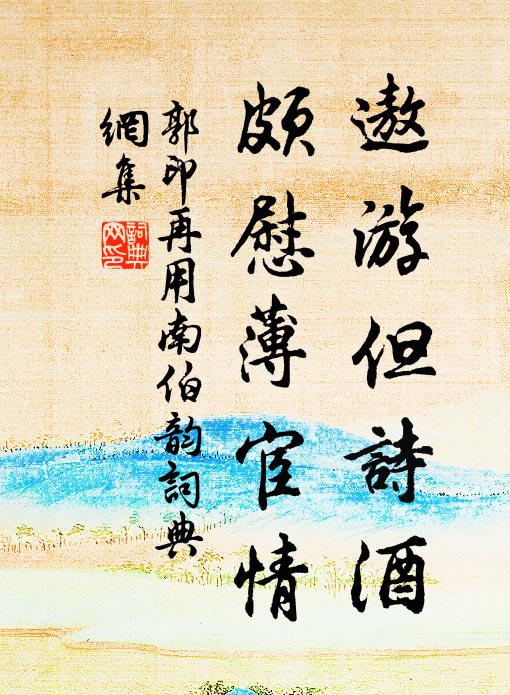 遨游但詩酒
頗慰薄宦情
郭印再用南伯韵詞典
網集
詞典
网印